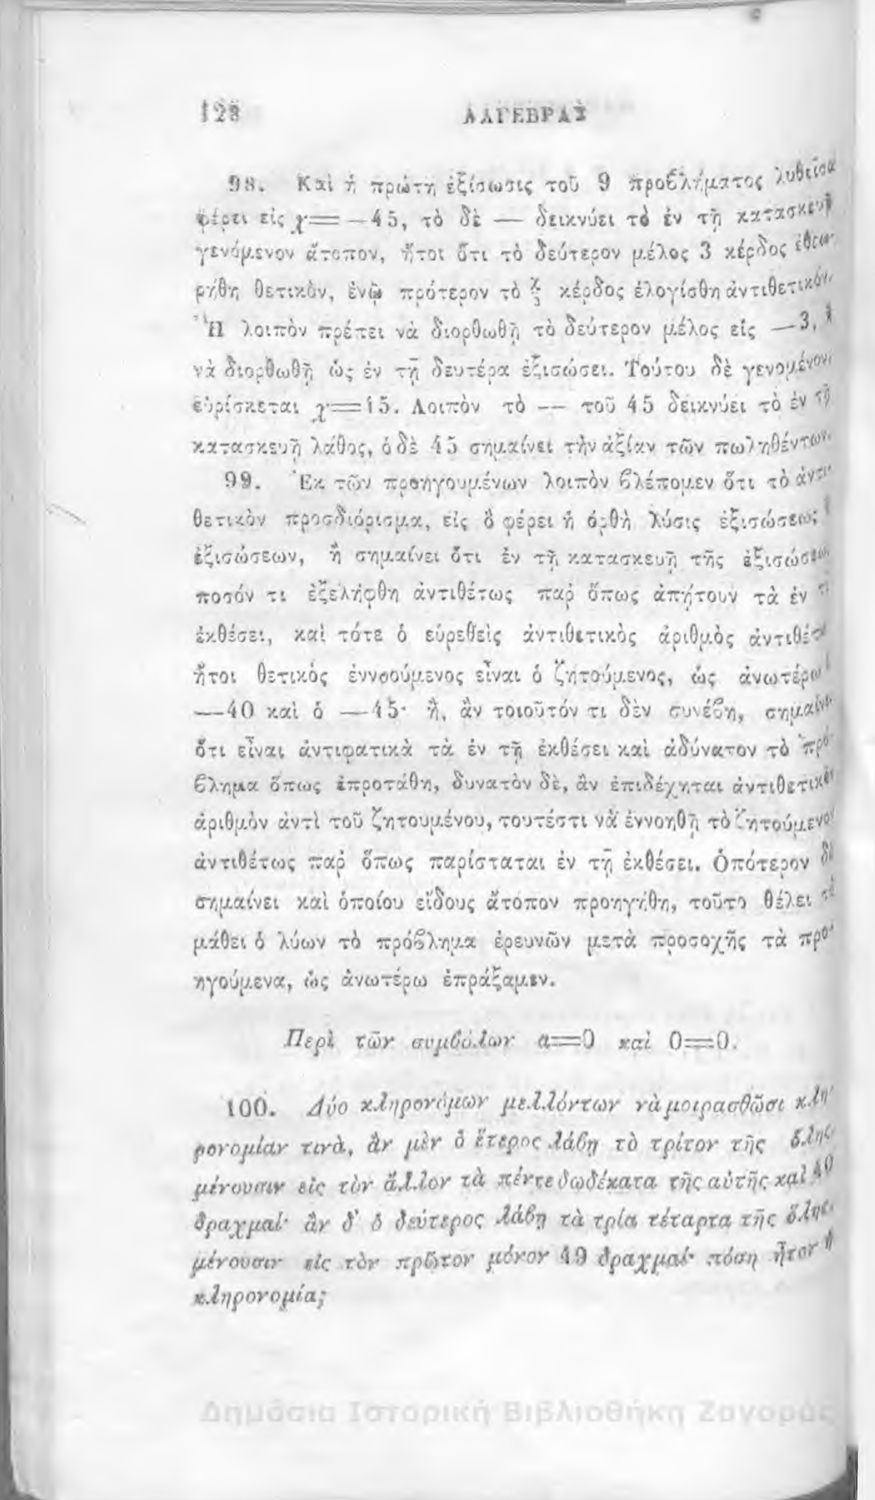 128 ΑΛΓΕΒΡΑΣ
98. Καὶ ἡ πρώτη ἐξίσωσις τοῦ 9 προβλήματος λυθεῖσα
φέρει εἰς χ=—45, τὸ δὲ — δεικνύει τὸ ἐν τῇ κατασκευῇ
γενόμενον ἄτοπον, ἤτοι ὅτι τὸ δεύτερον μέλος 3 κέρδος ἐθεω-
ρήθη θετικὸν, ἐνῷ πρότερον τὸ κέρδος ἐλογίσθη ἀντιθετικόν.
Ἢ λοιπὸν πρέπει νὰ διορθωθῇ τὸ δεύτερον μέλος εἰς —3, ἢ
νὰ διορθωθῇ ὡς ἐν τῇ δευτέρᾳ ἐξισώσει. Τούτου δὲ γενομένου
εὑρίσκεται χ=45. Λοιπὸν τὸ — τοῦ 45 δεικνύει τὸ ἐν τῇ
κατασκευῇ λάθος, ὁ δὲ 45 σημαίνει τὴν ἀξίαν τῶν πωληθέντων.
99. Ἐκ τῶν προηγουμένων λοιπὸν βλέπομεν ὅτι τὸ ἀντι-
θετικὸν προσδιόρισμα, εἰς ὃ φέρει ἡ ὀρθὴ λύσις ἐξισώσεως ἢ
ἐξισώσεων, ἢ σημαίνει ὅτι ἐν τῇ κατασκευῇ τῆς ἐξισώσεως
ποσόν τι ἐξελήφθη ἀντιθέτως παρ ὅπως ἀπῄτουν τὰ ἐν τῇ
ἐκθέσει, καὶ τότε ὁ εὑρεθεὶς ἀντιθετικὸς ἀριθμὸς ἀντιθέτως
ἤτοι θετικὸς ἐννοούμενος εἶναι ὁ ζητούμενος, ὡς ἀνωτέρω ὁ
—40 καὶ ὁ —45· ἢ, ἂν τοιοῦτόν τι δὲν συνέβη, σημαίνει
ὅτι εἶναι ἀντιφατικὰ τὰ ἐν τῇ ἐκθέσει καὶ ἀδύνατον τὸ πρό-
βλημα ὅπως ἐπροτάθη, δυνατὸν δὲ, ἂν ἐπιδέχηται ἀντιθετικὸν
ἀριθμὸν ἀντὶ τοῦ ζητουμένου, τουτέστι νὰ ἐννοηθῇ τὸ ζητούμενον
ἀντιθέτως παρ ὅπως παρίσταται ἐν τῇ ἐκθέσει. Ὁπότερον δὲ
σημαίνει καὶ ὁποίου εἴδους ἄτοπον προηγήθη, τοῦτο θέλει τὸ
μάθει ὁ λύων τὸ πρόβλημα ἐρευνῶν μετὰ προσοχῆς τὰ προ-
ηγούμενα, ὡς ἀνωτέρω ἐπράξαμεν.
Περὶ τῶν συμβόλων α=0 καὶ 0=0.
100. Δύο κληρονόμων μελλόντων νὰ μοιρασθῶσι κλη-
ρονομίαν τινὰ, ἂν μὲν ὁ ἕτερος λάβῃ τὸ τρίτον τῆς ὅλης,
μένουσιν εἰς τὸν ἄλλον τὰ πέντε δωδέκατα τῆς αὐτῆς καὶ 49
δραχμαί· ἂν δ' ὁ δεύτερος λάβῃ τὰ τρία τέταρτα τῆς ὅλης,
μένουσιν εἰς τὸν πρῶτον μόνον 49 δραχμαί· πόση ἦτον ἡ
κληρονομία;
Δημόσια Ιστορική Βιβλιοθήκη Ζαγοράς